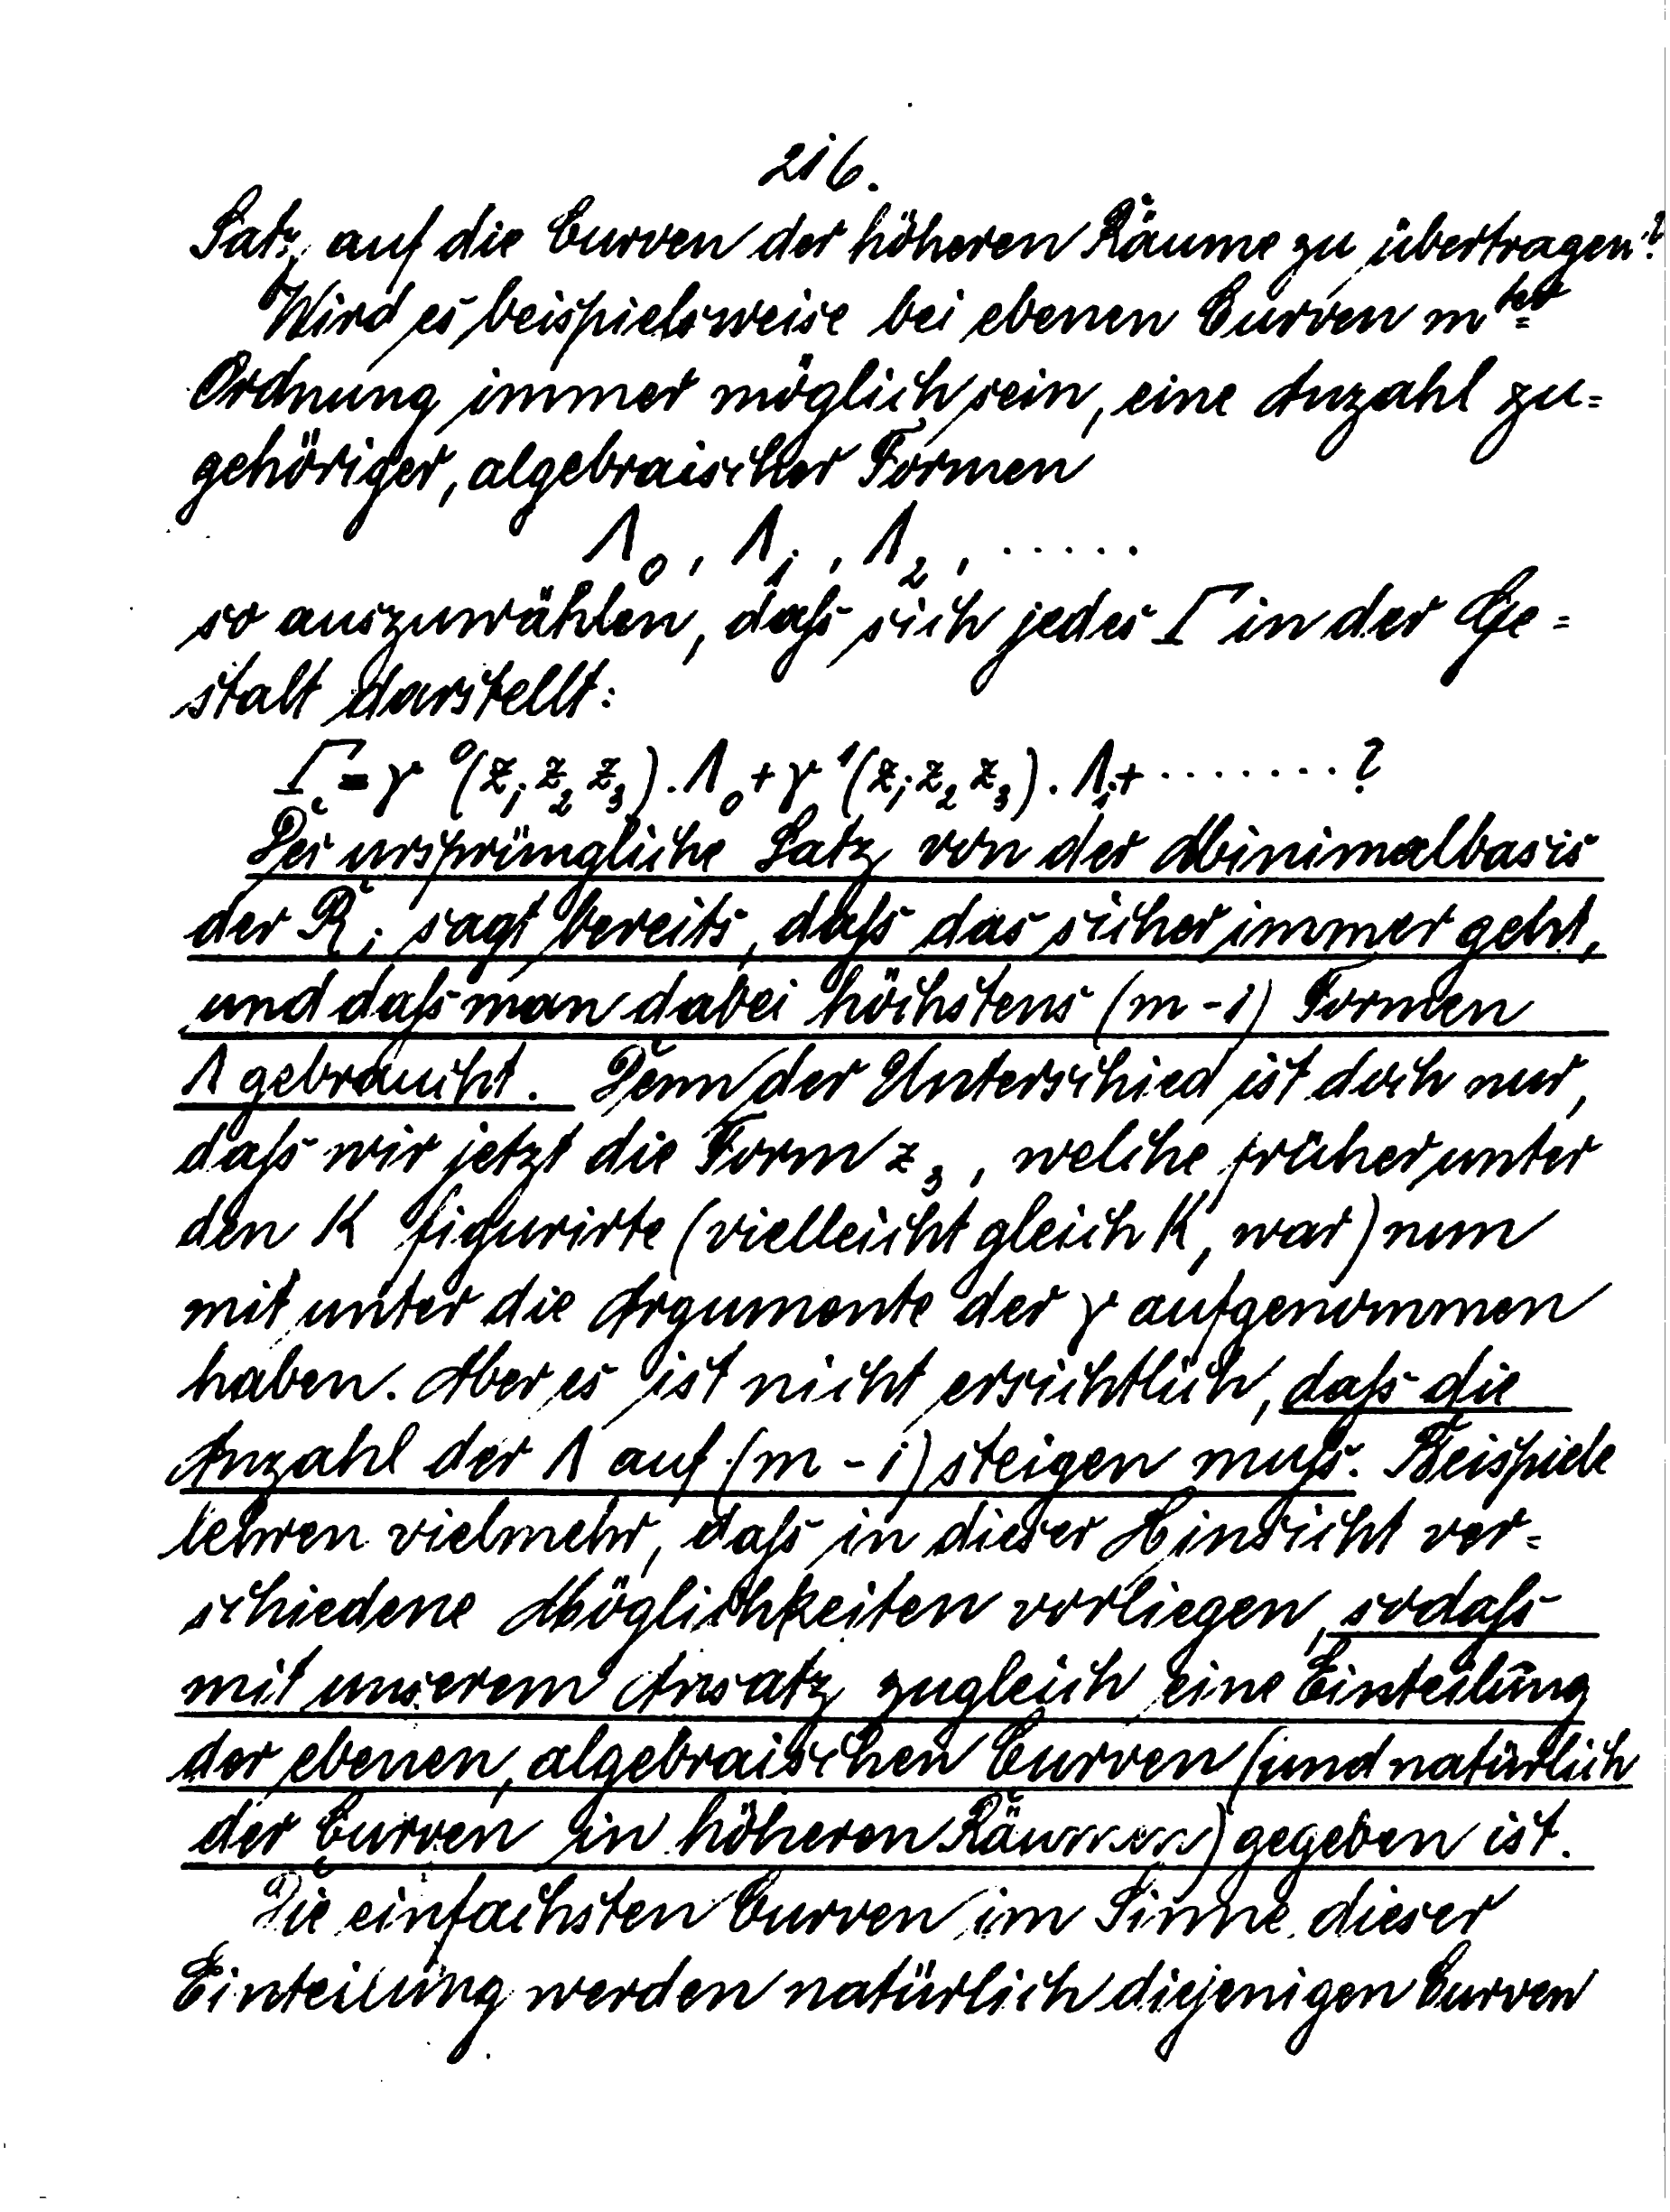 216.
Satz auf die Curven der höheren Räume zu übertragen?
Wird es beispielsweise bei ebenen Curven m^ter
Ordnung immer möglich sein, eine Anzahl zu=
gehöriger, algebraischer Formen
Λ₀, Λ₁, Λ₂, .....
so auszuwählen, daß sich jedes Γ in der Ge=
stalt darstellt:
Γ = γ⁰(z₁ z₂ z₃). Λ₀ + γ¹(z₁ z₂ z₃). Λ₁ + ........?
Der ursprüngliche Satz von der Minimalbasis
der R₁ sagt bereits, daß das sicher immer geht,
und daß man dabei höchstens (m-1) Formen
Λ gebraucht. Denn der Unterschied ist doch nur,
daß wir jetzt die Form z₃, welche früher unter
den K figurirte (vielleicht gleich K₁ war) nun
mit unter die Argumente der γ aufgenommen
haben. Aber es ist nicht ersichtlich, daß die
Anzahl der Λ auf (m-1) steigen muß. Beispiele
lehren vielmehr, daß in dieser Hinsicht ver=
schiedene Möglichkeiten vorliegen, sodaß
mit unserem Ansatz zugleich eine Einteilung
der ebenen, algebraischen Curven (und natürlich
der Curven in höheren Räumen) gegeben ist.
Die einfachsten Curven im Sinne dieser
Einteilung werden natürlich diejenigen Curven